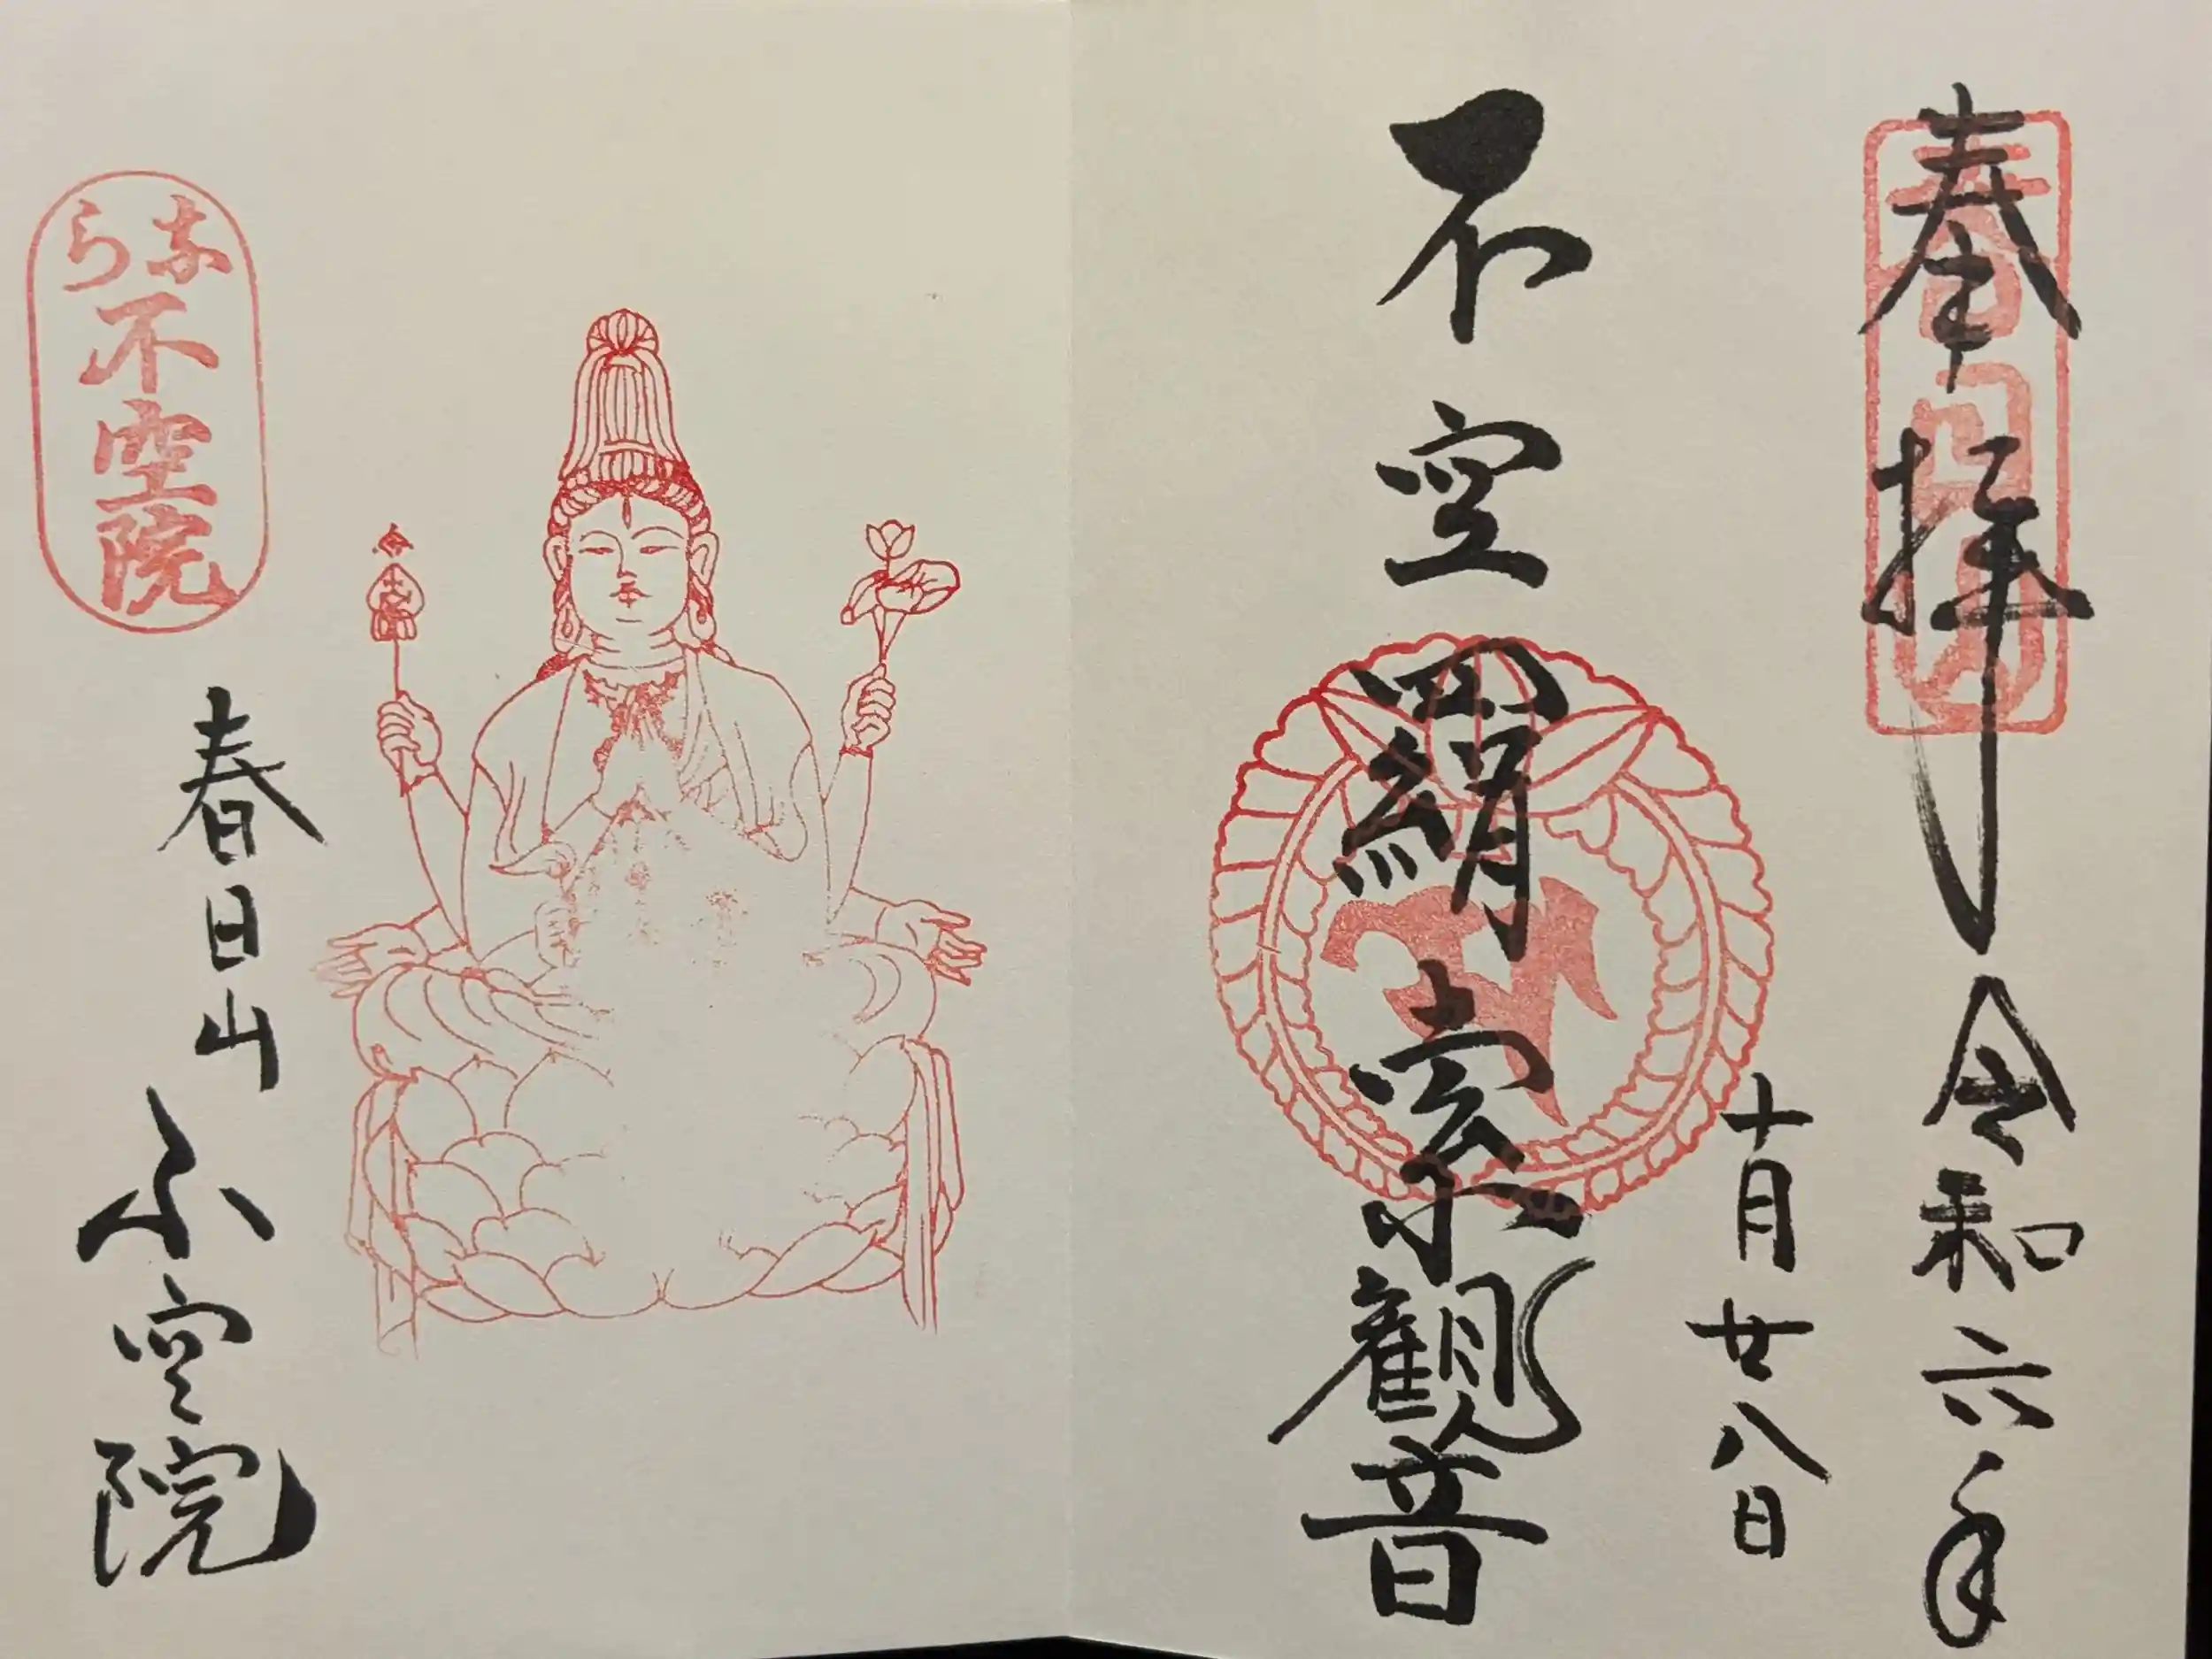 奉拝
令和六年
十月廿八日
不空羂索觀音
春日山
不空院
なら
不空院
春日山